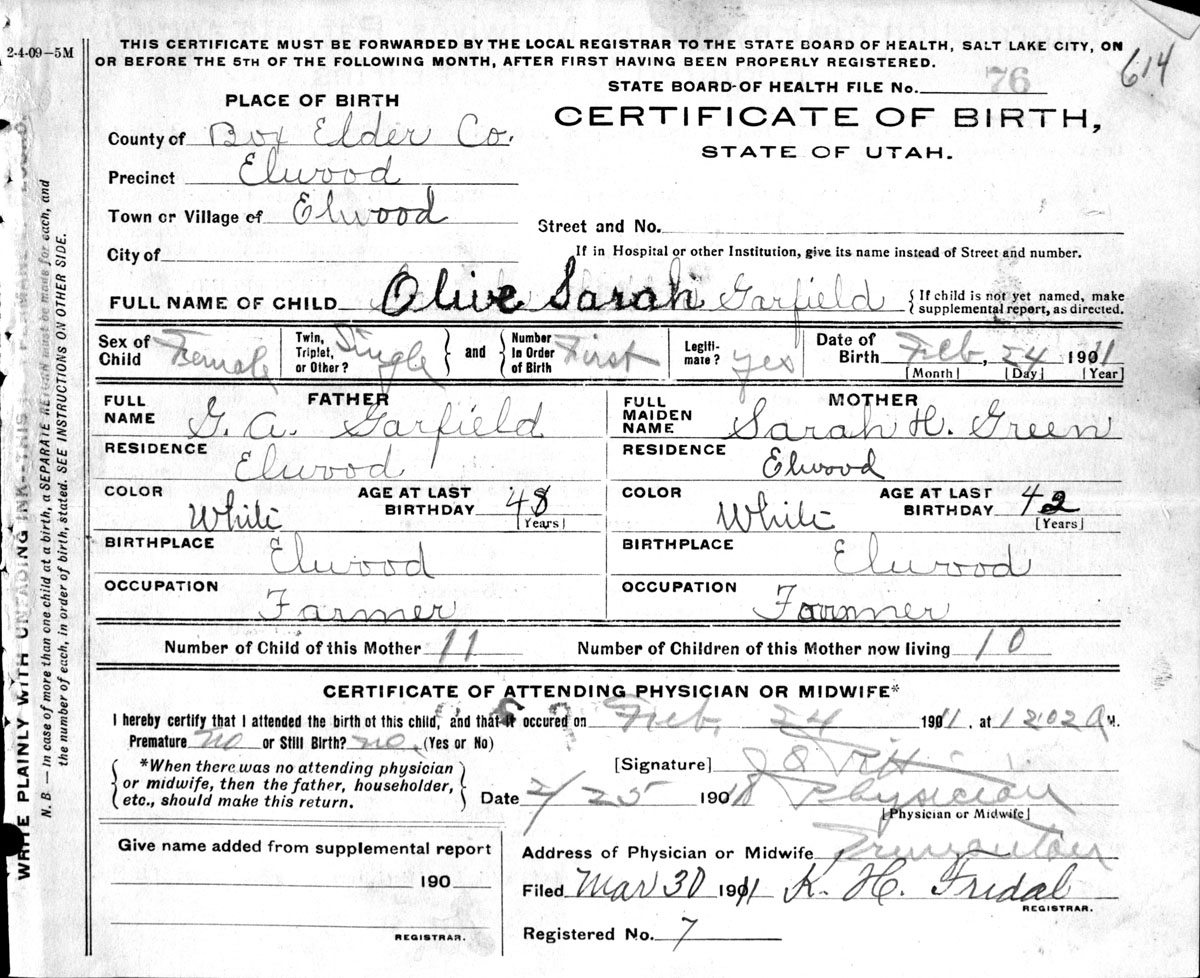 2-4-09—5M
THIS CERTIFICATE MUST BE FORWARDED BY THE LOCAL REGISTRAR TO THE STATE BOARD OF HEALTH, SALT LAKE CITY, ON
OR BEFORE THE 5TH OF THE FOLLOWING MONTH, AFTER FIRST HAVING BEEN PROPERLY REGISTERED.
614
STATE BOARD OF HEALTH FILE No. 76
PLACE OF BIRTH
CERTIFICATE OF BIRTH,
STATE OF UTAH.
County of Box Elder Co.
Precinct Elwood
Town or Village of Elwood
Street and No.
City of
If in Hospital or other Institution, give its name instead of Street and number.
FULL NAME OF CHILD Olive Sarah Garfield { If child is not yet named, make supplemental report, as directed.
Sex of Child Female Twin, Triplet, or Other? Single and Number In Order of Birth First Legitimate? yes Date of Birth Feb, 24 1911
[Month] [Day] [Year]
FATHER
FULL NAME G. A. Garfield
RESIDENCE Elwood
COLOR White AGE AT LAST BIRTHDAY 48 [Years]
BIRTHPLACE Elwood
OCCUPATION Farmer
MOTHER
FULL MAIDEN NAME Sarah H. Green
RESIDENCE Elwood
COLOR White AGE AT LAST BIRTHDAY 42 [Years]
BIRTHPLACE Elwood
OCCUPATION Farmer
Number of Child of this Mother 11 Number of Children of this Mother now living 10
CERTIFICATE OF ATTENDING PHYSICIAN OR MIDWIFE*
I hereby certify that I attended the birth of this child, and that it occured on Feb. 24 1911, at 1202 A M.
Premature no or Still Birth? no. (Yes or No)
*When there was no attending physician
or midwife, then the father, householder,
etc., should make this return.
[Signature]
Date 2/25 190 Physician
[Physician or Midwife]
Give name added from supplemental report
190
REGISTRAR.
Address of Physician or Midwife Tremonton
Filed Mar 30 1911 K. H. Fridal
REGISTRAR.
Registered No. 7
WRITE PLAINLY WITH UNFADING INK—THIS
N. B. — In case of more than one child at a birth, a SEPARATE RETURN must be made for each, and
the number of each, in order of birth, stated. SEE INSTRUCTIONS ON OTHER SIDE.